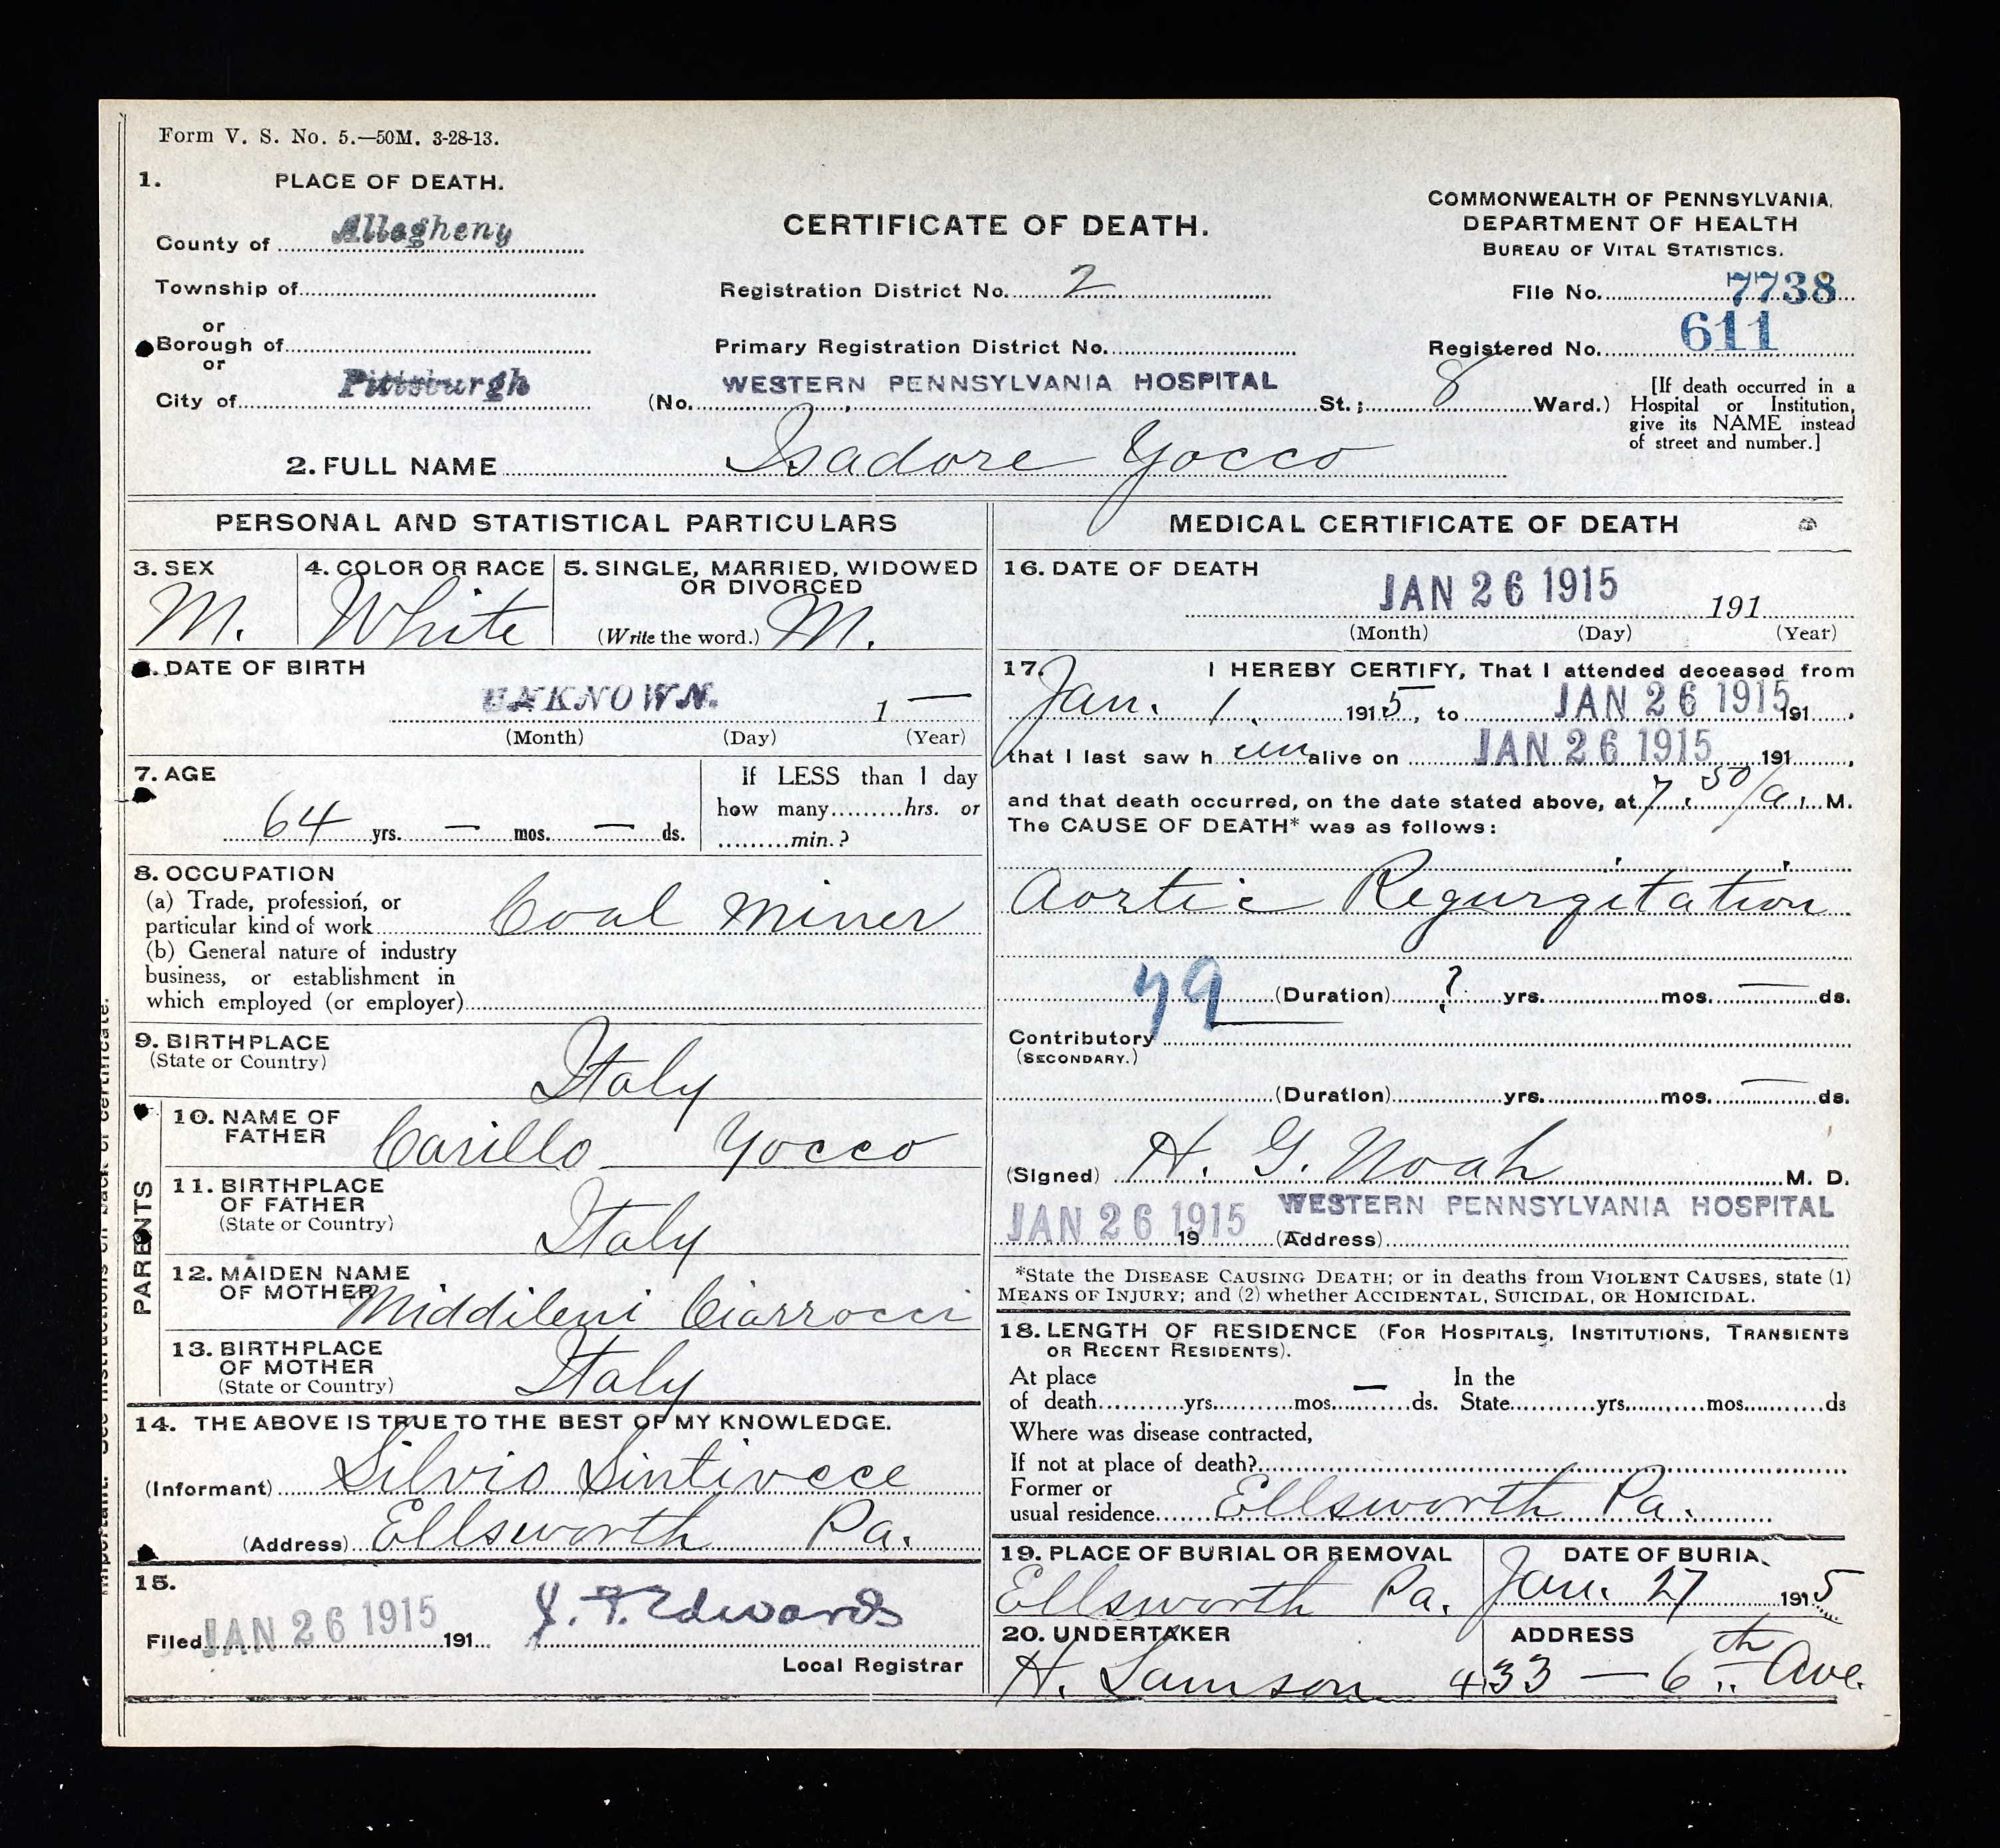 Form V. S. No. 5.—50M. 3-28-13.
1. PLACE OF DEATH.
County of Allegheny
Township of
or
Borough of
or
City of Pittsburgh
CERTIFICATE OF DEATH.
Registration District No. 2
Primary Registration District No.
(No. WESTERN PENNSYLVANIA HOSPITAL St.; 8 Ward.)
COMMONWEALTH OF PENNSYLVANIA.
DEPARTMENT OF HEALTH
BUREAU OF VITAL STATISTICS.
File No. 7738
Registered No. 611
[If death occurred in a
Hospital or Institution,
give its NAME instead
of street and number.]
2. FULL NAME Isadore Yocco
PERSONAL AND STATISTICAL PARTICULARS
3. SEX
M.
4. COLOR OR RACE
White
5. SINGLE, MARRIED, WIDOWED
OR DIVORCED
(Write the word.) M.
6. DATE OF BIRTH
UNKNOWN. 1 —
(Month) (Day) (Year)
7. AGE
64 yrs. — mos. — ds.
If LESS than 1 day
how many.........hrs. or
.........min.?
8. OCCUPATION
(a) Trade, profession, or
particular kind of work Coal Miner
(b) General nature of industry
business, or establishment in
which employed (or employer)
9. BIRTHPLACE
(State or Country)
Italy
PARENTS
10. NAME OF
FATHER Carillo Yocco
11. BIRTHPLACE
OF FATHER
(State or Country) Italy
12. MAIDEN NAME
OF MOTHER Middileni Ciarrocci
13. BIRTHPLACE
OF MOTHER
(State or Country) Italy
14. THE ABOVE IS TRUE TO THE BEST OF MY KNOWLEDGE.
(Informant) Silvio Sintivece
(Address) Ellsworth Pa.
15.
Filed JAN 26 1915 191 J. F. Edwards
Local Registrar
MEDICAL CERTIFICATE OF DEATH
16. DATE OF DEATH
JAN 26 1915 191
(Month) (Day) (Year)
17. I HEREBY CERTIFY, That I attended deceased from
Jan. 1. 1915, to JAN 26 1915 191
that I last saw h im alive on JAN 26 1915 191
and that death occurred, on the date stated above, at 7.50/a. M.
The CAUSE OF DEATH* was as follows:
Aortic Regurgitation
79 (Duration) ? yrs. mos. — ds.
Contributory
(SECONDARY.)
(Duration) yrs. mos. — ds.
(Signed) H. G. Noah M. D.
JAN 26 1915 19 (Address) WESTERN PENNSYLVANIA HOSPITAL
*State the DISEASE CAUSING DEATH; or in deaths from VIOLENT CAUSES, state (1)
MEANS OF INJURY; and (2) whether ACCIDENTAL, SUICIDAL, OR HOMICIDAL.
18. LENGTH OF RESIDENCE (FOR HOSPITALS, INSTITUTIONS, TRANSIENTS
OR RECENT RESIDENTS).
At place In the
of death yrs. mos. — ds. State yrs. mos. ds
Where was disease contracted,
If not at place of death?
Former or
usual residence Ellsworth Pa.
19. PLACE OF BURIAL OR REMOVAL
Ellsworth Pa.
DATE OF BURIAL
Jan. 27 1915
20. UNDERTAKER
H. Samson
ADDRESS
433 — 6th Ave.
important. See instructions on back of certificate.